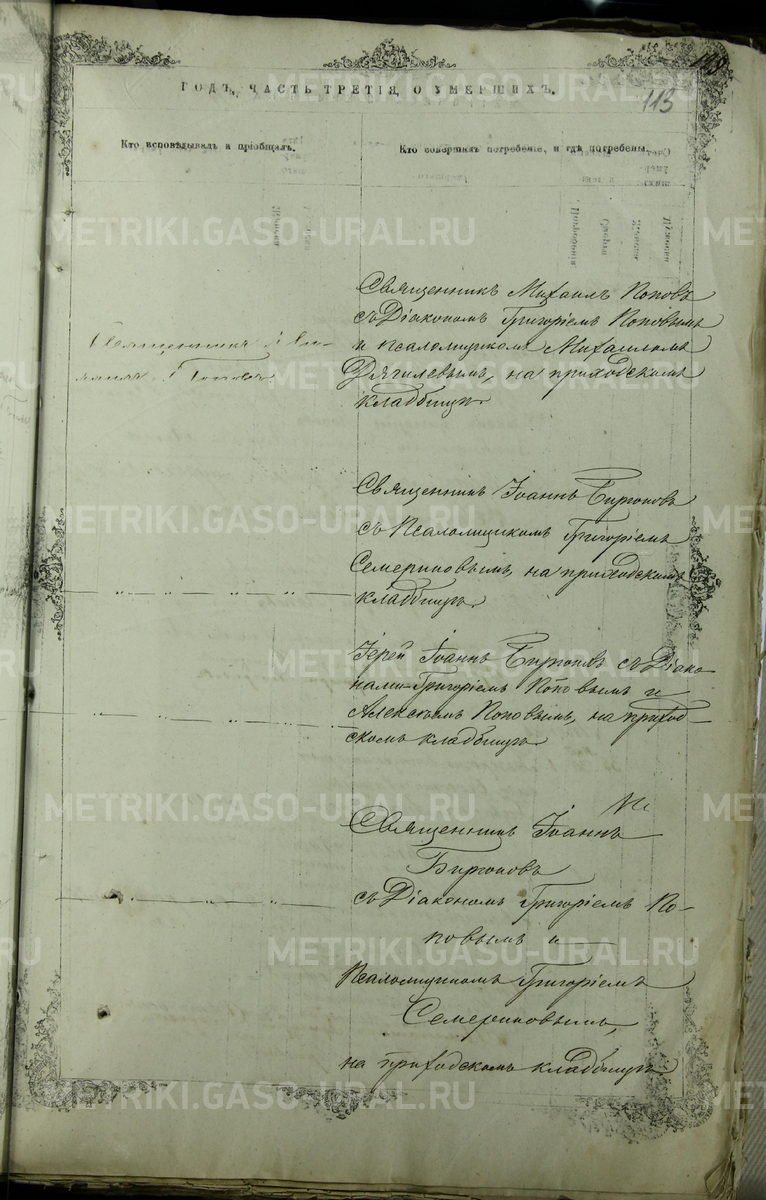 113
ГОДЪ, ЧАСТЬ ТРЕТІЯ, О УМЕРШИХЪ.
113
Кто исповѣдывалъ и пріобщалъ.
Кто совершалъ погребеніе, и гдѣ погребены.
Священникъ
Поповъ
Священникъ Михаилъ Поповъ
съ Діакономъ Григоріемъ Поповымъ
и псаломщикомъ Михаиломъ
Дягилевымъ, на приходскомъ
кладбищѣ.
Священникъ Іоаннъ Бирюковъ
съ Псаломщикомъ Григоріемъ
Семериковымъ, на приходскомъ
кладбищѣ.
Іерей Іоаннъ Бирюковъ съ Діако-
нами Григоріемъ Поповымъ и
Алексѣемъ Поповымъ, на приход-
скомъ кладбищѣ.
Священникъ Іоаннъ
Бирюковъ
съ Діакономъ Григоріемъ По-
повымъ и
Псаломщикомъ Григоріемъ
Семериковымъ,
на приходскомъ кладбищѣ
METRIKI.GASO-URAL.RU